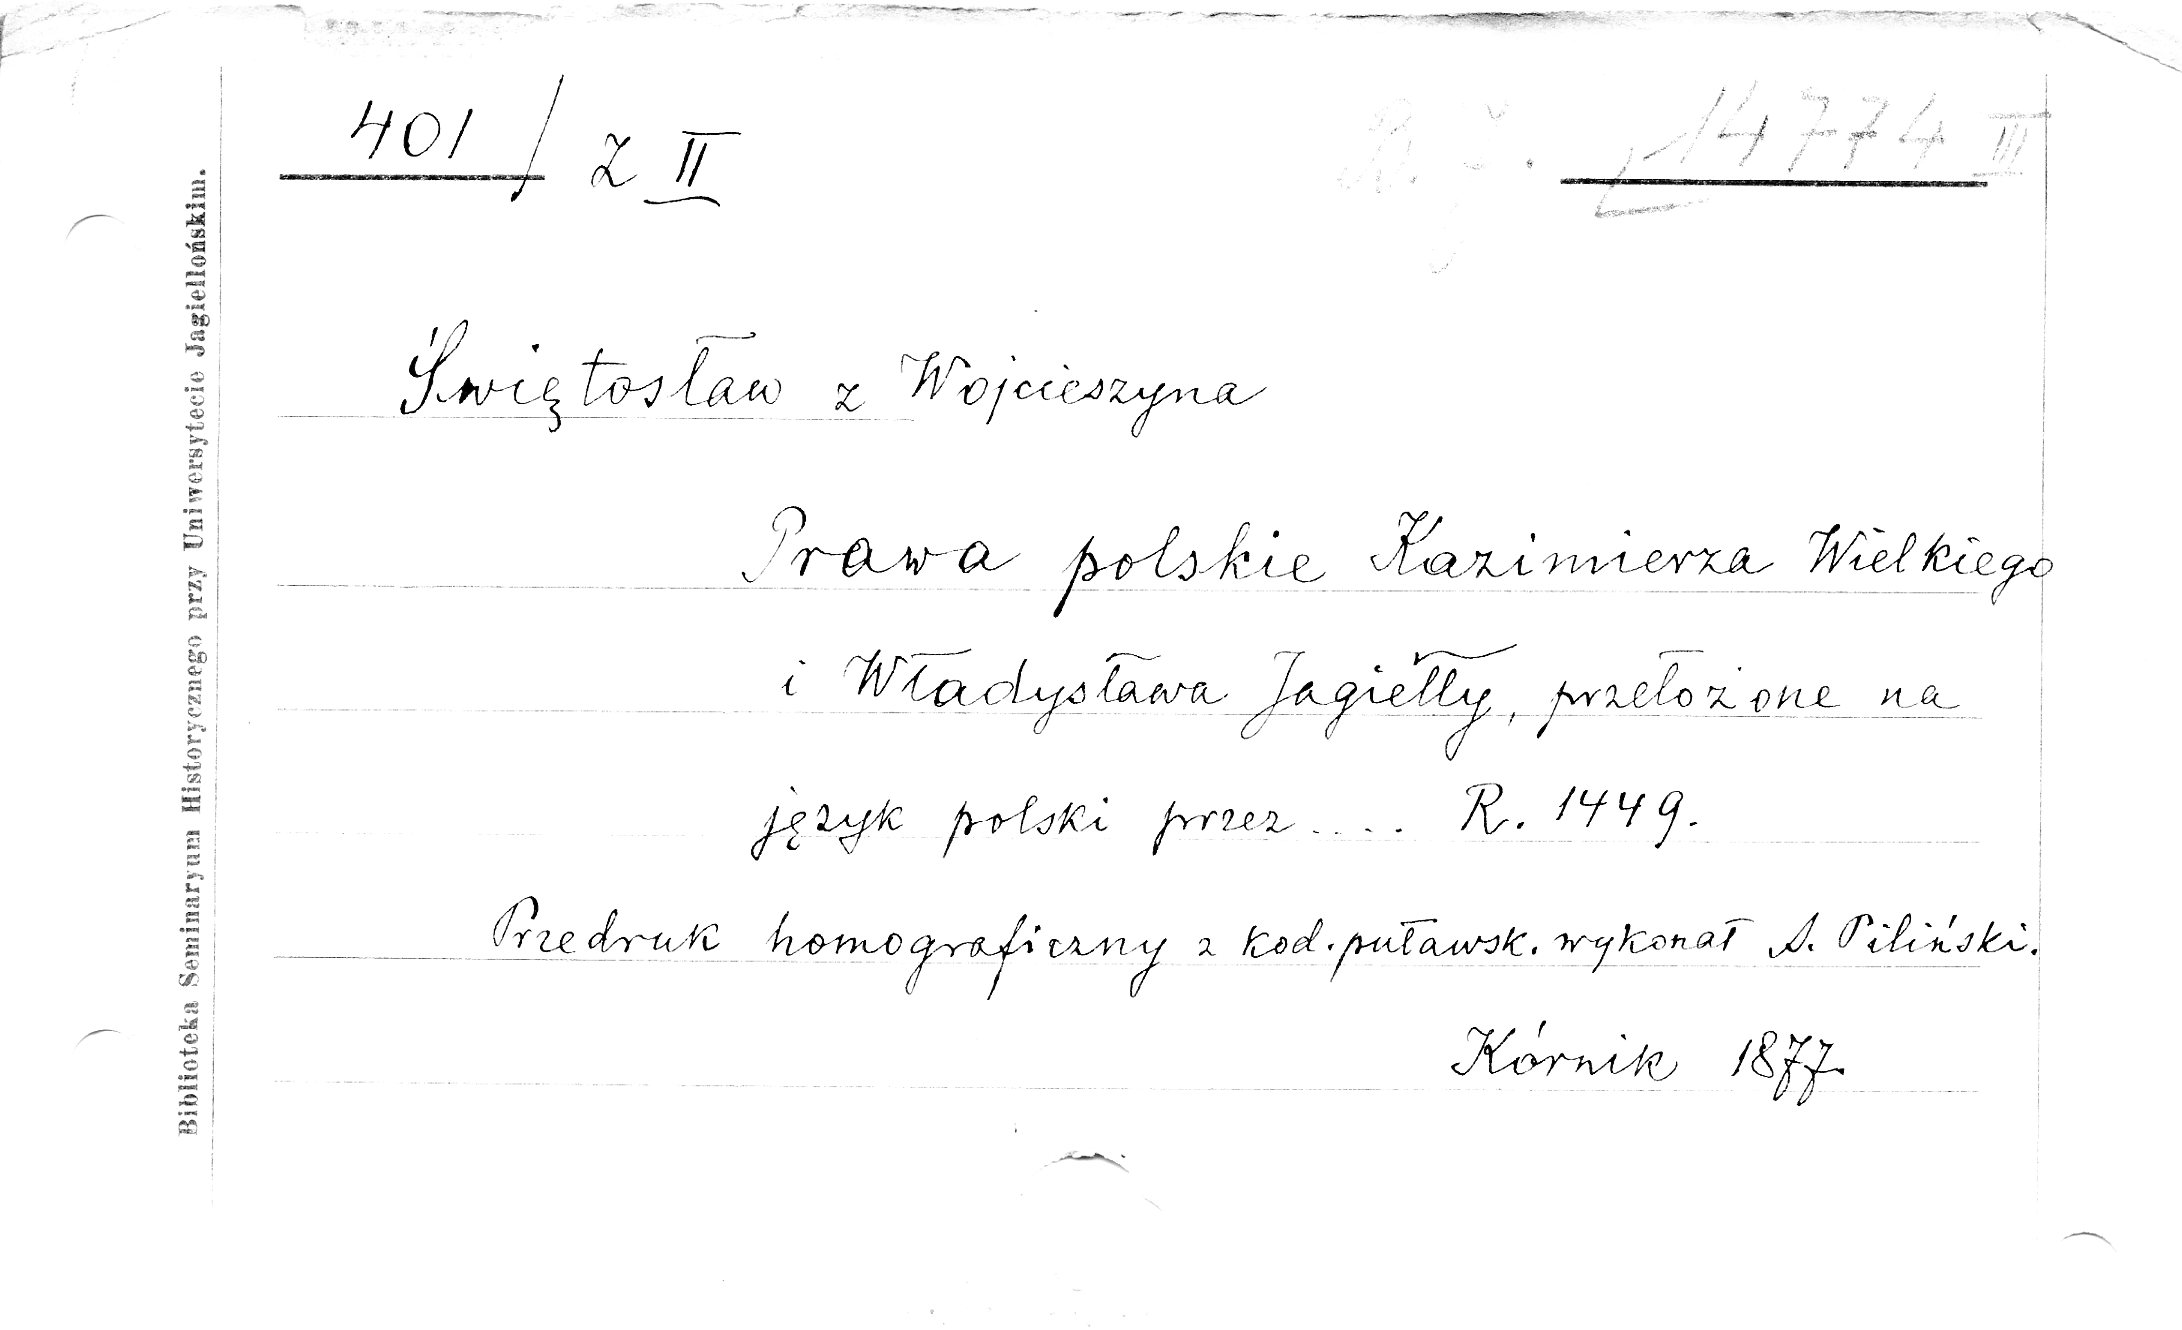 401 / Z II
B. j. 14774 III
Świętosław z Wojcieszyna
Prawa polskie Kazimierza Wielkiego
i Władysława Jagiełły, przełożone na
język polski przez .... R. 1449.
Przedruk homograficzny z kod. puławsk. wykonał A. Piliński.
Kórnik 1877.
Biblioteka Seminaryum Historycznego przy Uniwersytecie Jagiellońskim.